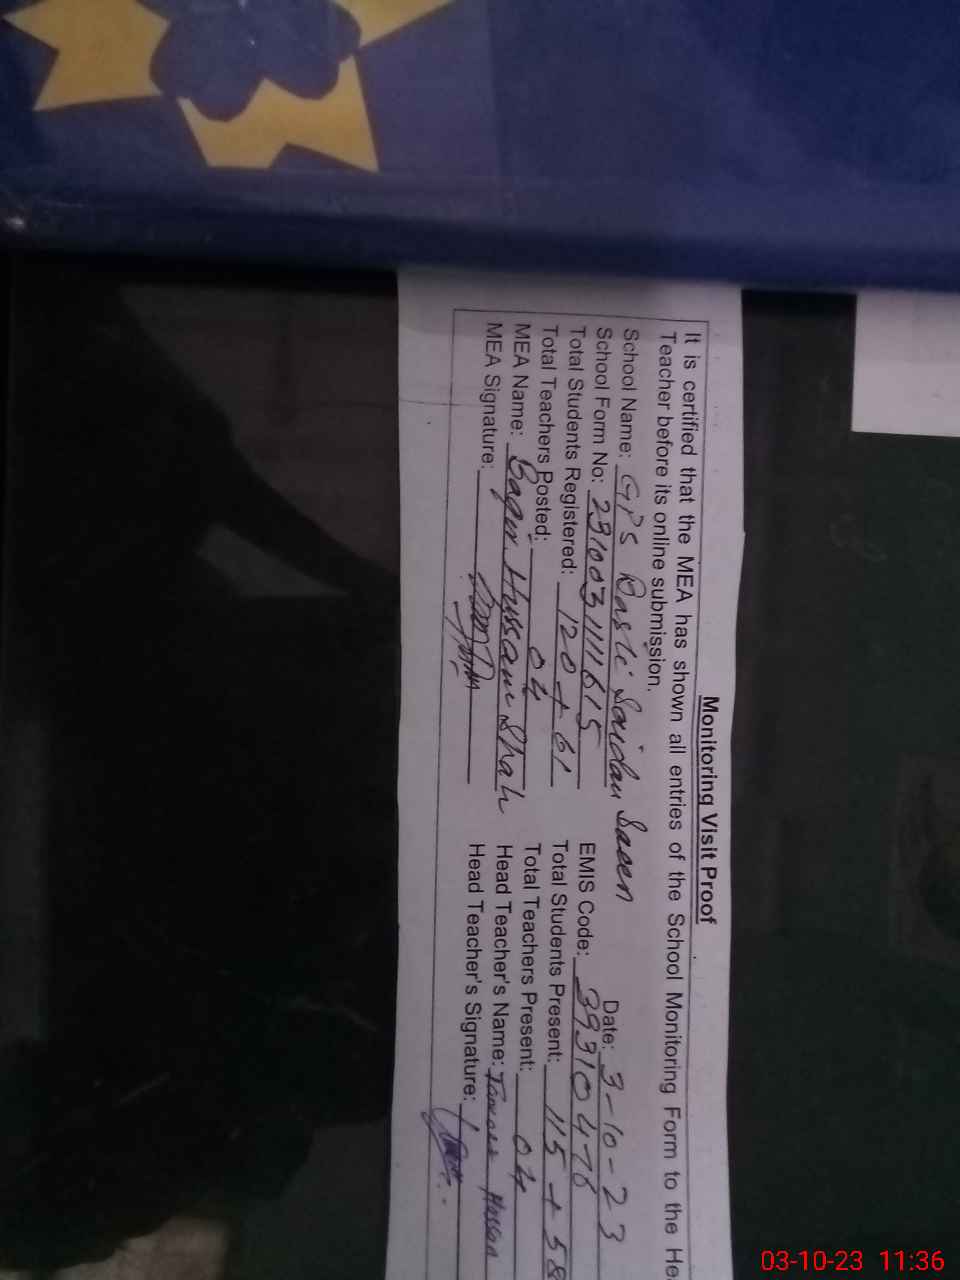 Monitoring Visit Proof
It is certified that the MEA has shown all entries of the School Monitoring Form to the He
Teacher before its online submission.
School Name: GPS Basti Saidan Date: 3-10-23
School Form No: 231003111615 EMIS Code: 39310476
Total Students Registered: 120 + 61 Total Students Present: 115 + 58
Total Teachers Posted: 04 Total Teachers Present: 04
MEA Name: Baqir Hussain Shah Head Teacher's Name: Hassan
MEA Signature: Head Teacher's Signature:
03-10-23 11:36